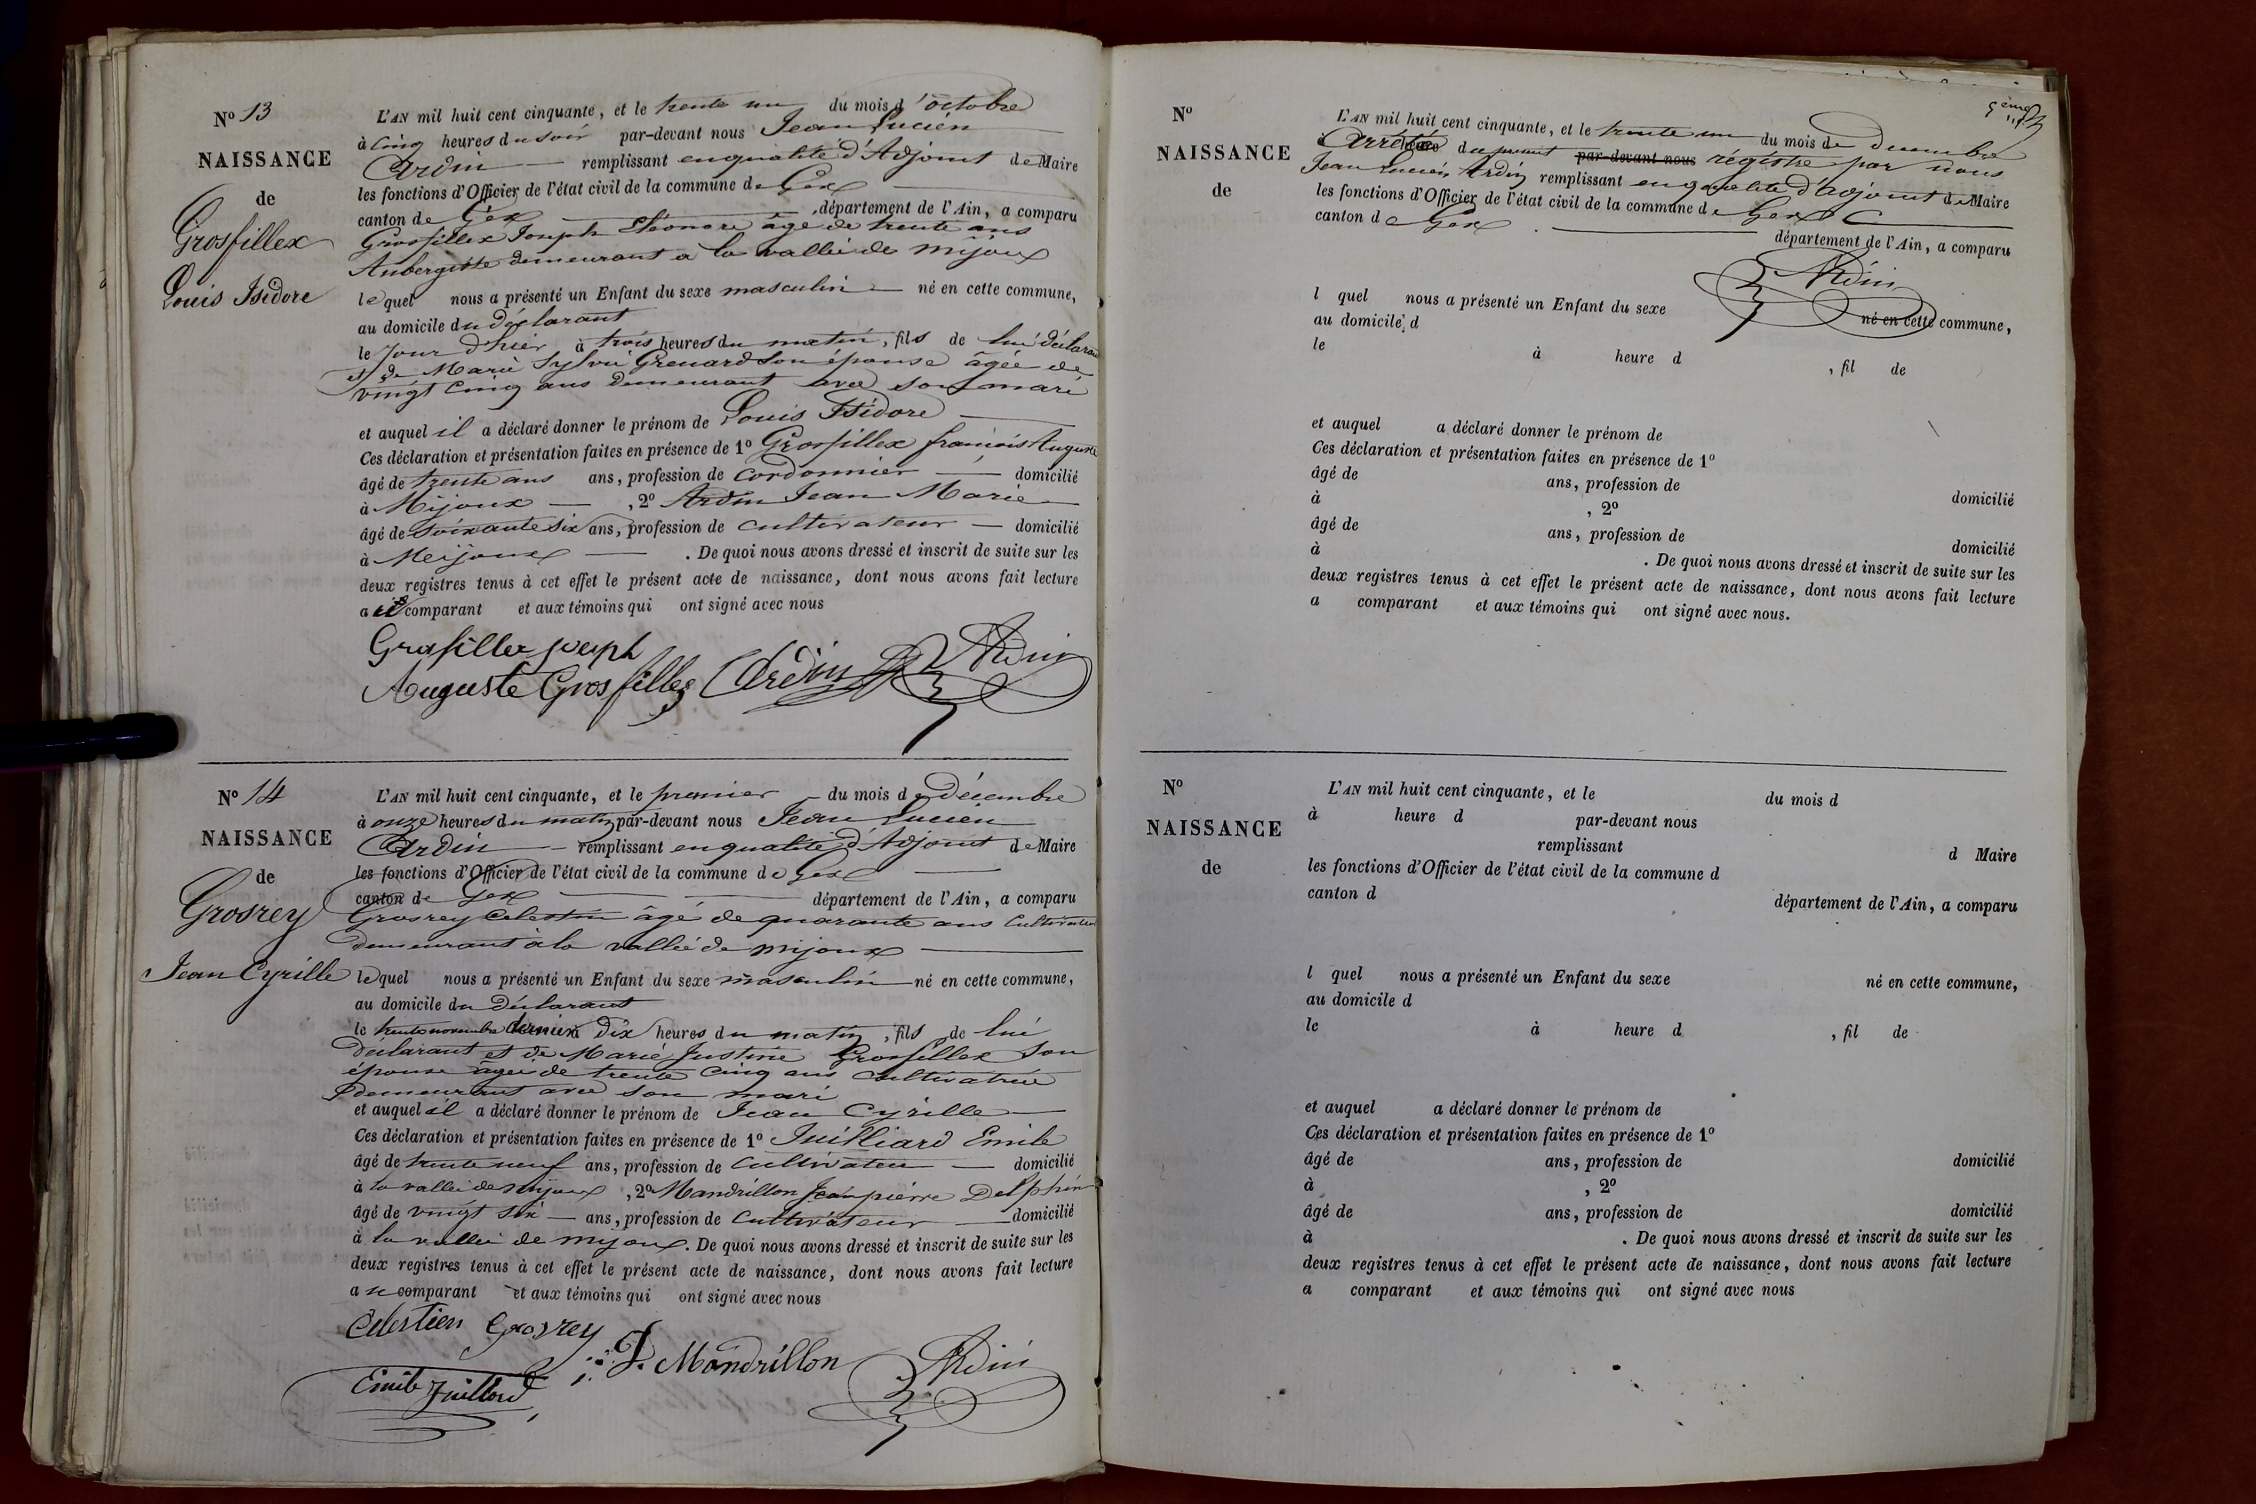 No 13
NAISSANCE
de
Grosfillex
Louis Isidore
L'AN mil huit cent cinquante, et le trente un du mois d'octobre
à cinq heures du soir par-devant nous Jean Lucien
Ardin remplissant en qualité d'Adjoint de Maire
les fonctions d'Officier de l'état civil de la commune de Gex
canton de Gex département de l'Ain, a comparu
Grosfillex Joseph Eléonore âgé de trente ans
Aubergiste demeurant à la vallée de mijoux
lequel nous a présenté un Enfant du sexe masculin né en cette commune,
au domicile du déclarant
le jour d'hier à trois heures du matin, fils de lui déclarant
et de Marie Sylvie Grenard son épouse âgée de
vingt cinq ans demeurant avec son mari
et auquel il a déclaré donner le prénom de Louis Isidore
Ces déclaration et présentation faites en présence de 1o Grosfillex françois Auguste
âgé de trente ans ans, profession de cordonnier domicilié
à Mijoux , 2o Ardin Jean Marie
âgé de soixante six ans, profession de cultivateur domicilié
à Meijoux . De quoi nous avons dressé et inscrit de suite sur les
deux registres tenus à cet effet le présent acte de naissance, dont nous avons fait lecture
a comparant et aux témoins qui ont signé avec nous
Grosfillex joseph
Auguste Grosfillex Ardin Ardin
No 14
NAISSANCE
de
Grosrey
Jean Cyrille
L'AN mil huit cent cinquante, et le premier du mois de décembre
à onze heures du matin par-devant nous Jean Lucien
Ardin remplissant en qualité d'Adjoint de Maire
les fonctions d'Officier de l'état civil de la commune de Gex
canton de Gex département de l'Ain, a comparu
Grosrey Celestin âgé de quarante ans Cultivateur
demeurant à la vallée de mijoux
lequel nous a présenté un Enfant du sexe masculin né en cette commune,
au domicile du Déclarant
le trente novembre dernier à Dix heures du matin, fils de lui
déclarant et de Marie Justine Grosfillex son
épouse âgée de trente cinq ans cultivatrice
demeurant avec son mari
et auquel il a déclaré donner le prénom de Jean Cyrille
Ces déclaration et présentation faites en présence de 1o Juilliard Emile
âgé de trente neuf ans, profession de Cultivateur domicilié
à la vallée de mijoux , 2o Mandrillon Jean pierre Delphin
âgé de vingt six ans, profession de Cultivateur domicilié
à la vallée de mijoux. De quoi nous avons dressé et inscrit de suite sur les
deux registres tenus à cet effet le présent acte de naissance, dont nous avons fait lecture
au comparant et aux témoins qui ont signé avec nous
Celestien Grosrey
J. Mandrillon Ardin
Emile Juillard
5ème
No
NAISSANCE
de
L'AN mil huit cent cinquante, et le trente un du mois de decembre
Arrêté du present par-devant nous régistre par nous
Jean Lucien Ardin remplissant en qualité d'adjoint de Maire
les fonctions d'Officier de l'état civil de la commune de Gex
canton de Gex département de l'Ain, a comparu
Ardin
l quel nous a présenté un Enfant du sexe né en cette commune,
au domicile d
le à heure d , fil de
et auquel a déclaré donner le prénom de
Ces déclaration et présentation faites en présence de 1o
âgé de ans, profession de domicilié
à , 2o
âgé de ans, profession de domicilié
à . De quoi nous avons dressé et inscrit de suite sur les
deux registres tenus à cet effet le présent acte de naissance, dont nous avons fait lecture
a comparant et aux témoins qui ont signé avec nous.
No
NAISSANCE
de
L'AN mil huit cent cinquante, et le du mois d
à heure d par-devant nous
remplissant d Maire
les fonctions d'Officier de l'état civil de la commune d
canton d département de l'Ain, a comparu
l quel nous a présenté un Enfant du sexe né en cette commune,
au domicile d
le à heure d , fil de
et auquel a déclaré donner le prénom de
Ces déclaration et présentation faites en présence de 1o
âgé de ans, profession de domicilié
à , 2o
âgé de ans, profession de domicilié
à . De quoi nous avons dressé et inscrit de suite sur les
deux registres tenus à cet effet le présent acte de naissance, dont nous avons fait lecture
a comparant et aux témoins qui ont signé avec nous